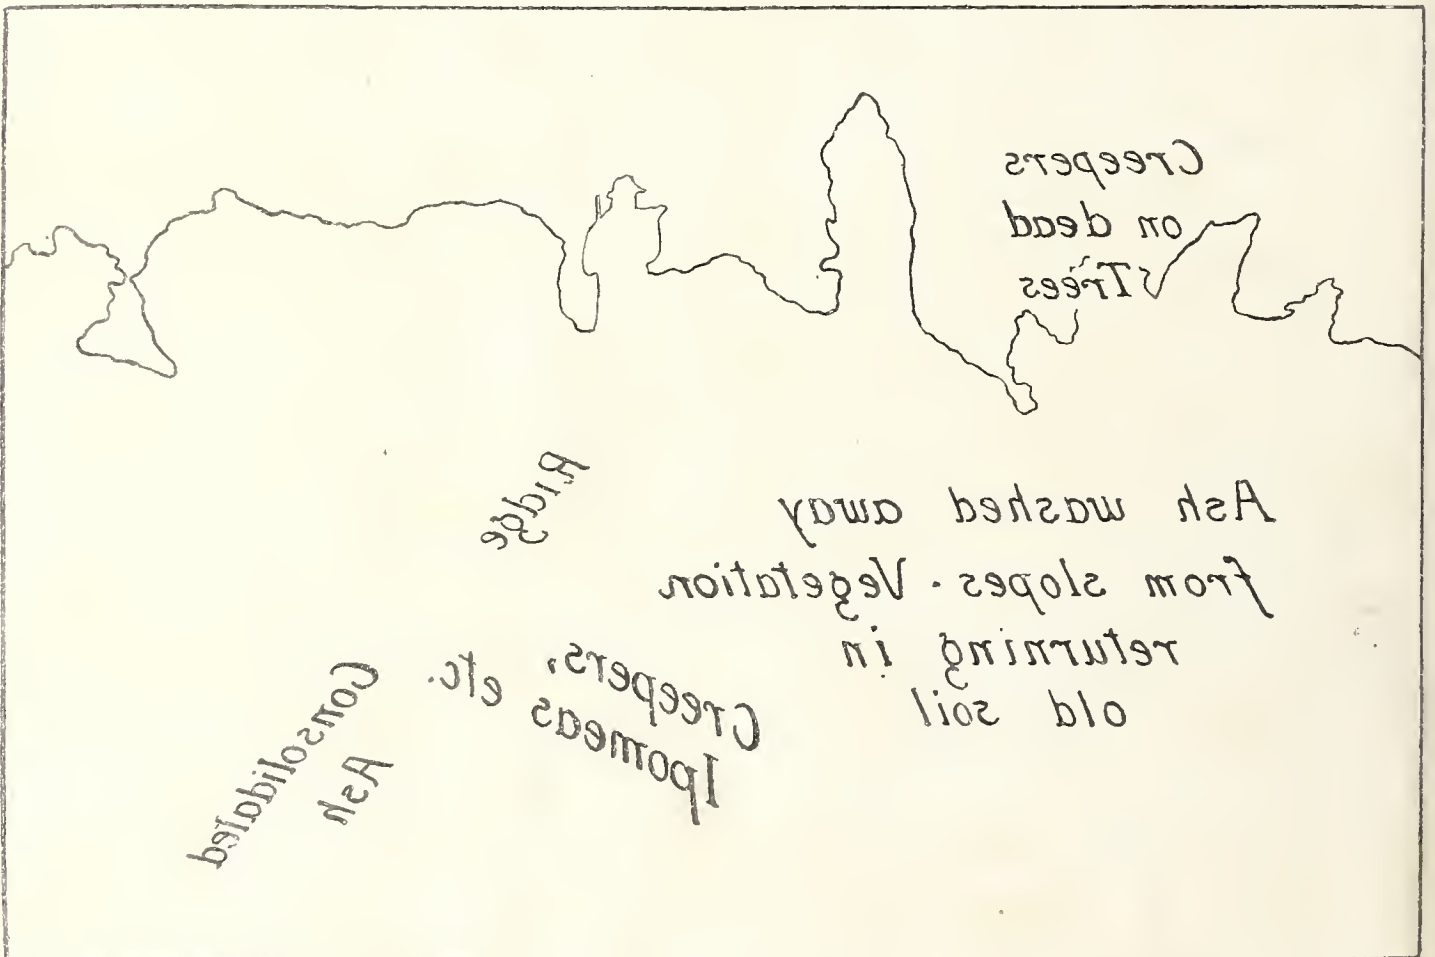 Creepers
on dead
Trees
Ridge
Ash washed away
from slopes. Vegetation
returning in
old soil
Creepers,
Ipomeas etc.
Consolidated
Ash